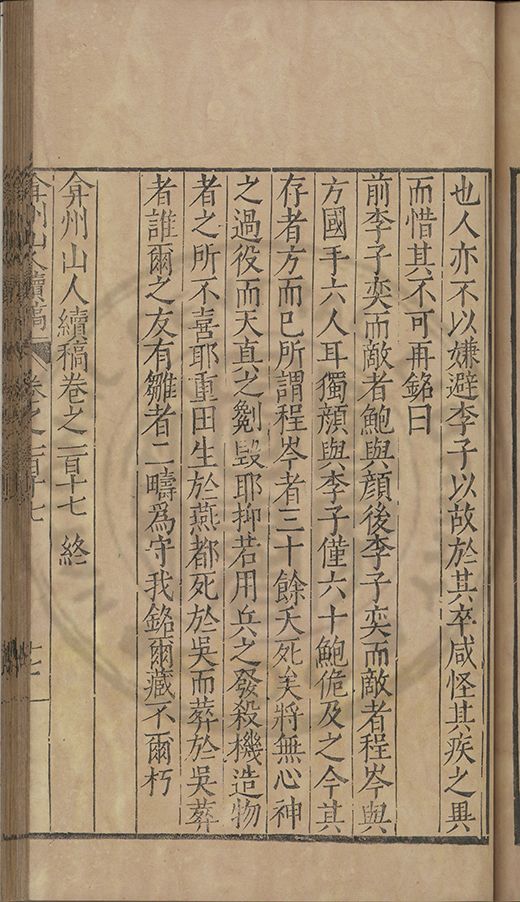 也人亦不以嫌避李子以故於其卒咸怪其疾之異
而惜其不可再銘曰
前李子奕而敵者鮑與顔後李子奕而敵者程岑與
方國手六人耳獨顔與李子僅六十鮑儋及之今其
存者方而已所謂程岑者三十餘夭死矣將無心神
之過役而天真之劖毀耶抑若用兵之發殺機造物
者之所不喜耶重田生於燕都死於吳而葬於吳葬
者誰爾之友有雛者二疇爲守我銘爾藏不爾朽
弇州山人續稿卷之一百十七 終
弇州山人續稿 卷之一百十七